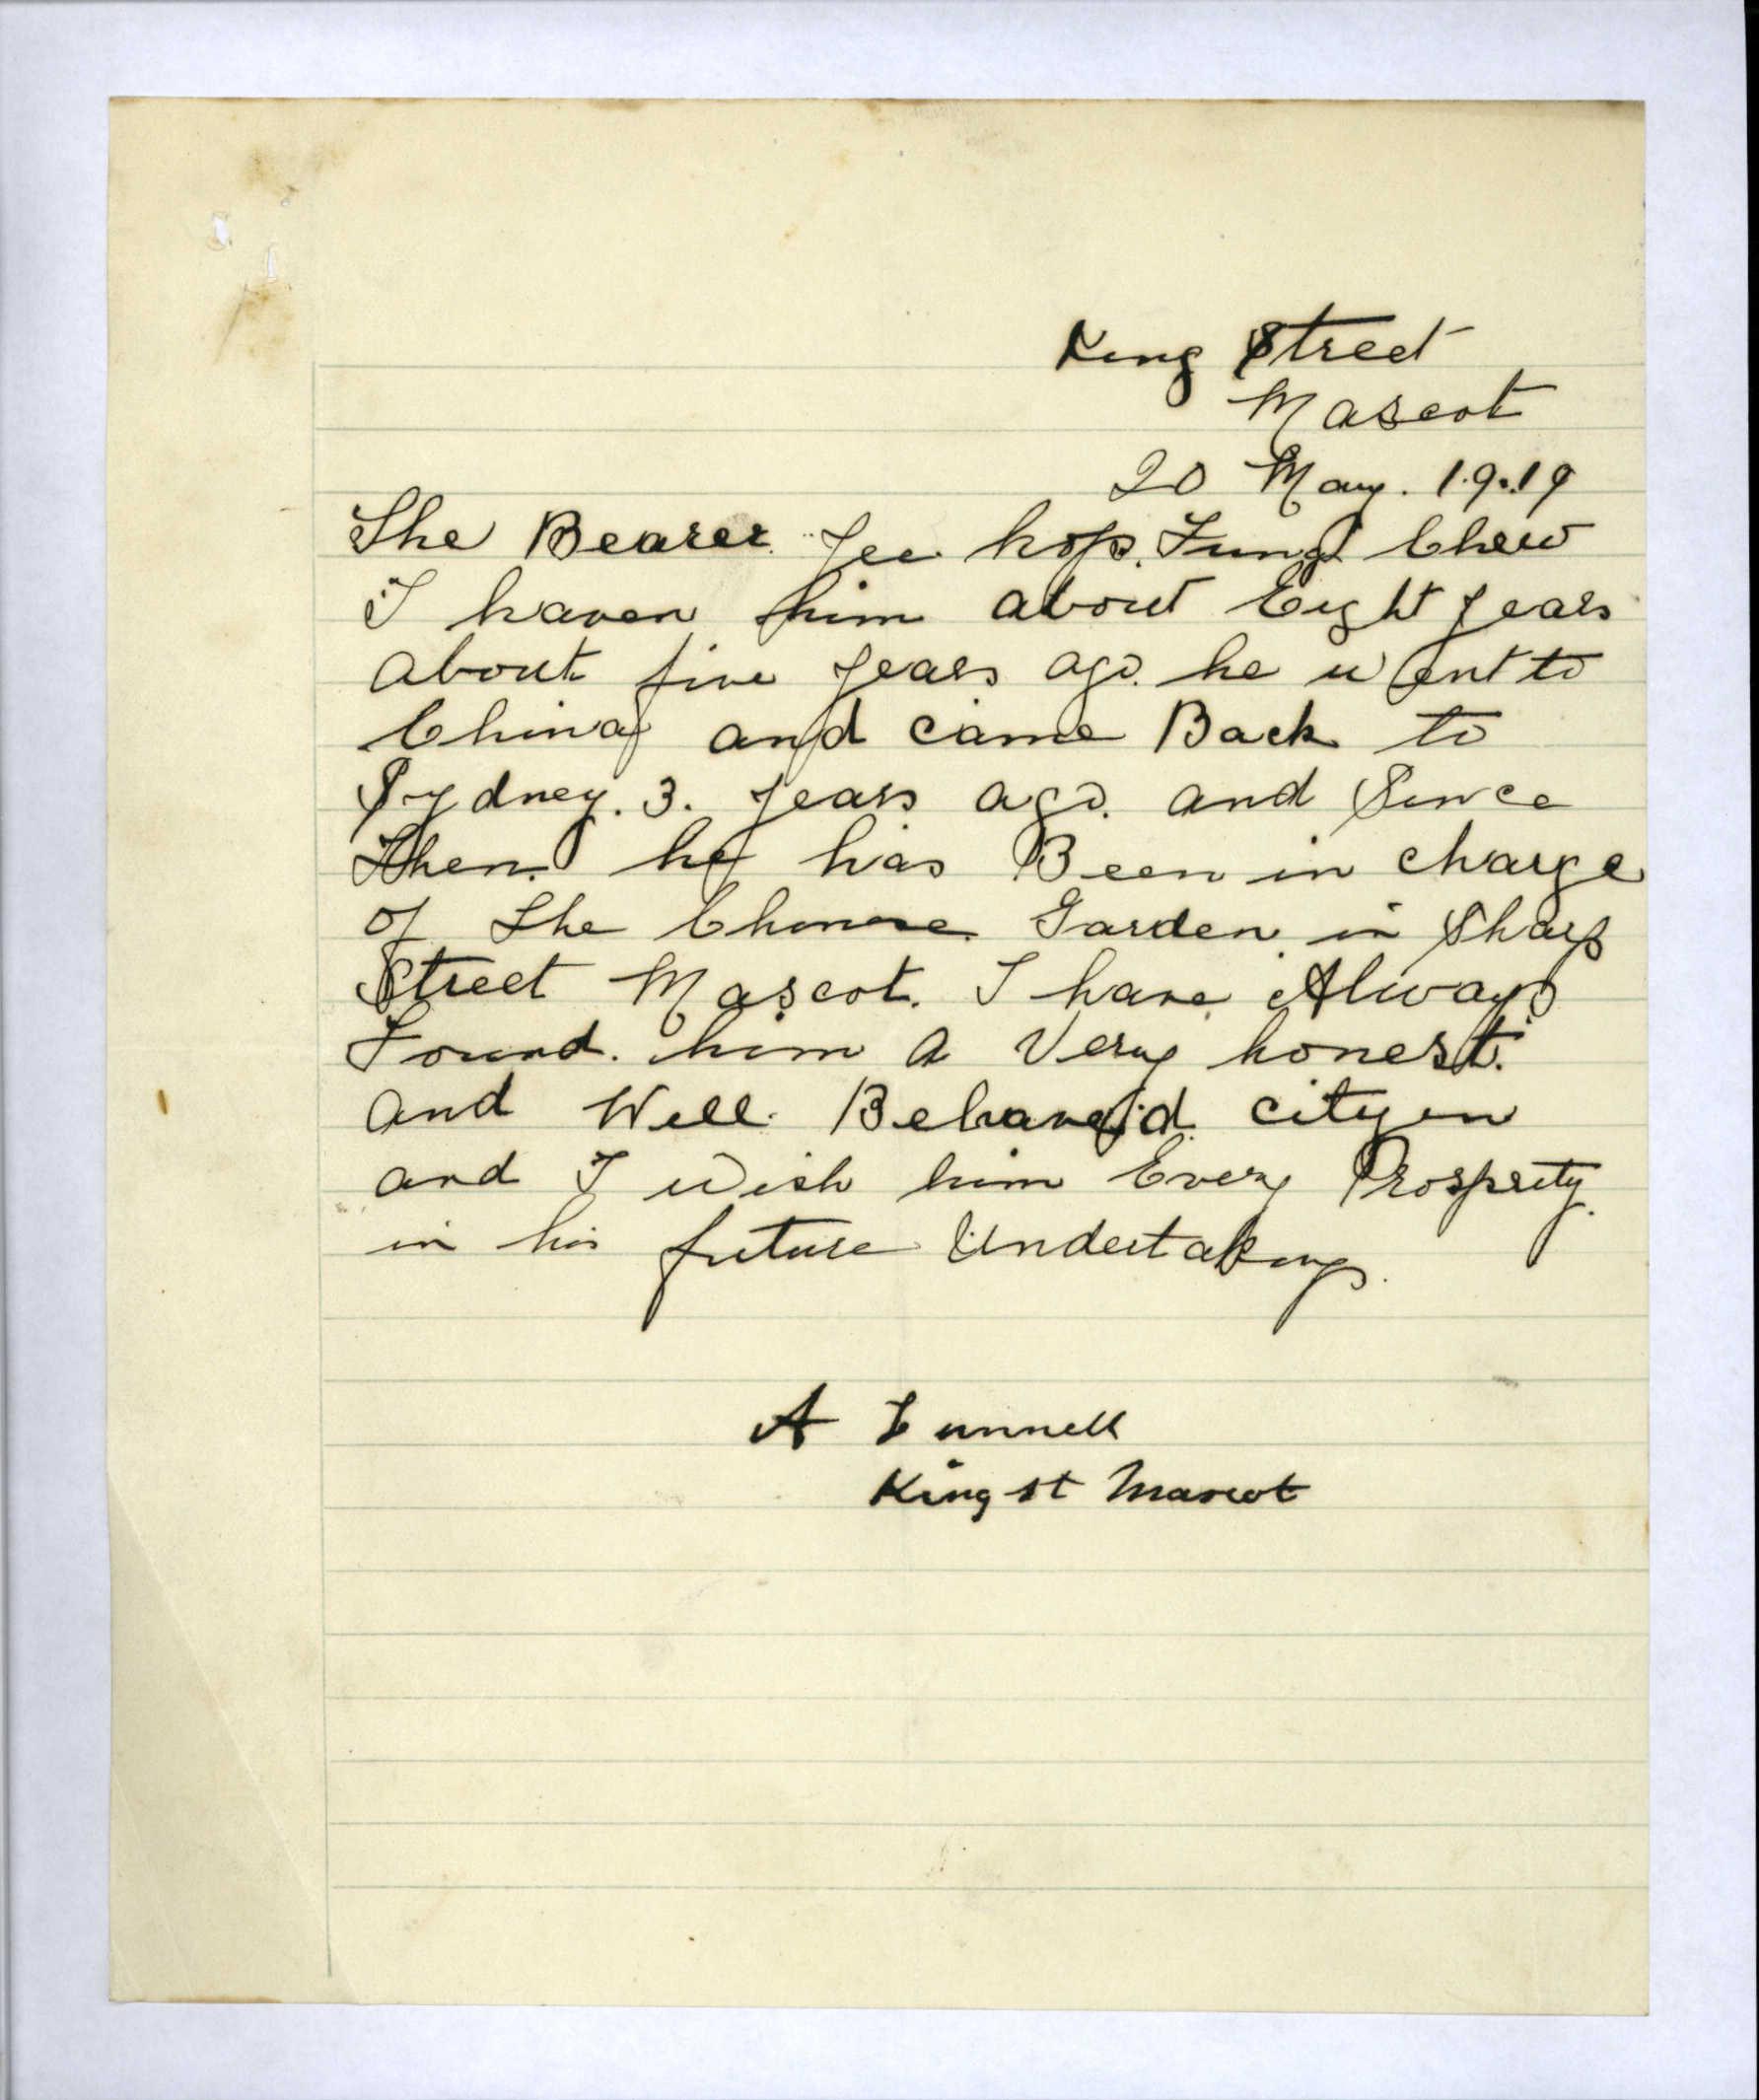 King Street
Mascot
20 May. 1.9.19
The Bearer Yee hop. Fung Chew
I haven him about Eight years
about five years ago. he went to
China and came Back to
Sydney. 3. years ago. and Since
Then. he has Been in charge
of The Chinese Garden in Sharp
Street Mascot. I have Always
Found. him a Very honest.
and Well. Behaved cityen
and I Wish him Every Prosperity.
in his future Undertakings.
A
King st Mascot